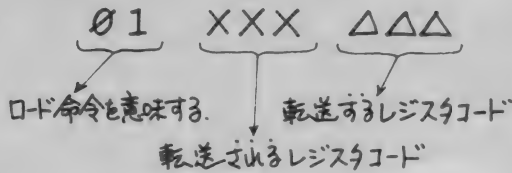 01 ××× △△△
ロード命令を意味する.
転送するレジスタコード
転送されるレジスタコード